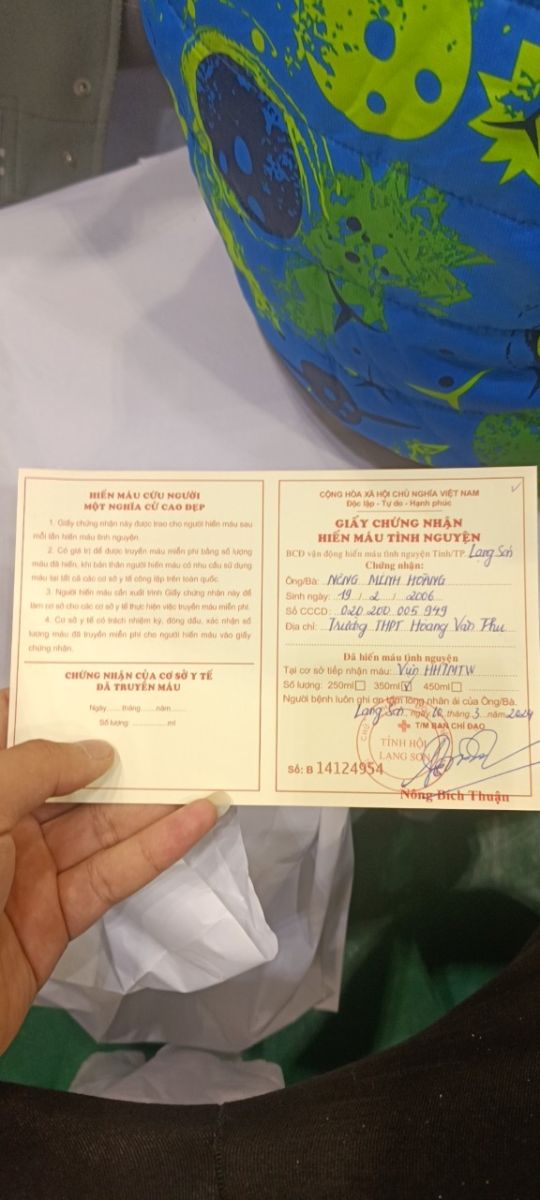 HIẾN MÁU CỨU NGƯỜI
MỘT NGHĨA CỬ CAO ĐẸP
1. Giấy chứng nhận này được trao cho người hiến máu sau
mỗi lần hiến máu tình nguyện.
2. Có giá trị để được truyền máu miễn phí bằng số lượng
máu đã hiến, khi bản thân người hiến máu có nhu cầu sử dụng
máu tại tất cả các cơ sở y tế công lập trên toàn quốc.
3. Người hiến máu cần xuất trình Giấy chứng nhận này để
làm cơ sở cho các cơ sở y tế thực hiện việc truyền máu miễn phí.
4. Cơ sở y tế có trách nhiệm ký, đóng dấu, xác nhận số
lượng máu đã truyền miễn phí cho người hiến máu vào giấy
chứng nhận.
CHỨNG NHẬN CỦA CƠ SỞ Y TẾ
ĐÃ TRUYỀN MÁU
Ngày...... tháng......năm......
Số lượng: .................. ml
CỘNG HÒA XÃ HỘI CHỦ NGHĨA VIỆT NAM
Độc lập - Tự do - Hạnh phúc
GIẤY CHỨNG NHẬN
HIẾN MÁU TÌNH NGUYỆN
BCĐ vận động hiến máu tình nguyện Tỉnh/TP. Lạng Sơn
Chứng nhận:
Ông/Bà: NÔNG MINH HOÀNG
Sinh ngày: 19 / 2 / 2006
Số CCCD: 020 200 005 949
Địa chỉ: Trường THPT Hoàng Văn Thụ
Đã hiến máu tình nguyện
Tại cơ sở tiếp nhận máu: Viện HHTMTW
Số lượng: 250ml☐ 350ml☑ 450ml☐
Người bệnh luôn ghi ơn tấm lòng nhân ái của Ông/Bà.
Lạng Sơn, ngày 10 tháng 3 năm 2024
T/M BAN CHỈ ĐẠO
TỈNH HỘI
LẠNG SƠN
Số: B 14124954
Nông Bích Thuận